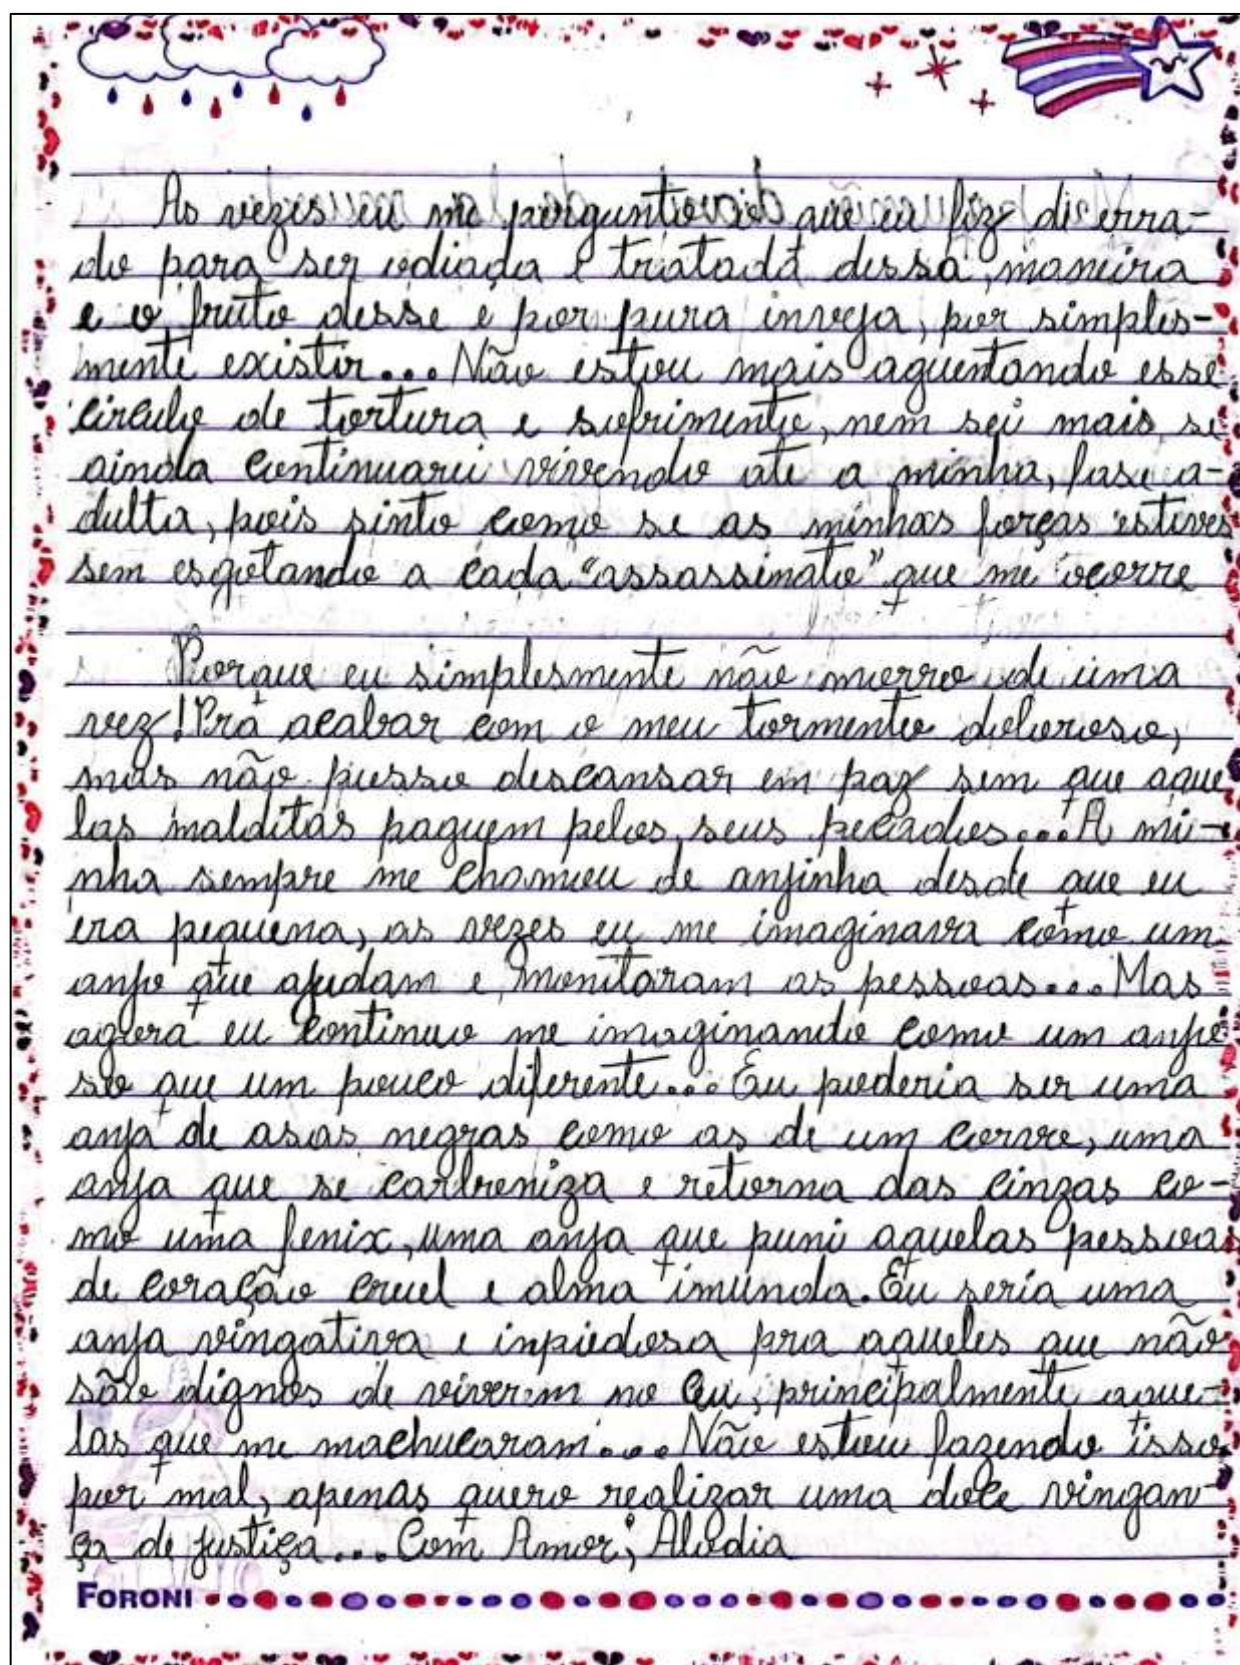 As vezes eu me pergunto o que eu fiz de erra-
do para ser odiada e tratada dessa maneira
e o fruto desse e por pura inveja, por simples-
mente existir... Não estou mais aguentando esse
circulo de tortura e sofrimento, nem sei mais se
ainda continuarei vivendo ate a minha fase a-
dulta, pois sinto como se as minhas forças estives
sem esgotando a cada "assassinato" que me ocorre
Porque eu simplesmente não morro de uma
vez! Pra acabar com o meu tormento doloroso,
mas não posso descansar em paz sem que aque
las malditas paguem pelos seus pecados... A mi-
nha sempre me chamou de anjinha desde que eu
era pequena, as vezes eu me imaginava como um
anjo que ajudam e monitoram as pessoas... Mas
agora eu continuo me imaginando como um anjo
so que um pouco diferente... Eu poderia ser uma
anja de asas negras como as de um corvo, uma
anja que se carboniza e retorna das cinzas co-
mo uma fenix, uma anja que puni aquelas pessoas
de coração cruel e alma imunda. Eu seria uma
anja vingativa e inpiedosa pra aqueles que não
são dignos de viverem no Ceu, principalmente aque-
las que me machucaram... Não estou fazendo isso
por mal, apenas quero realizar uma doce vingan-
ça de justiça... Com Amor; Alodia
FORONI